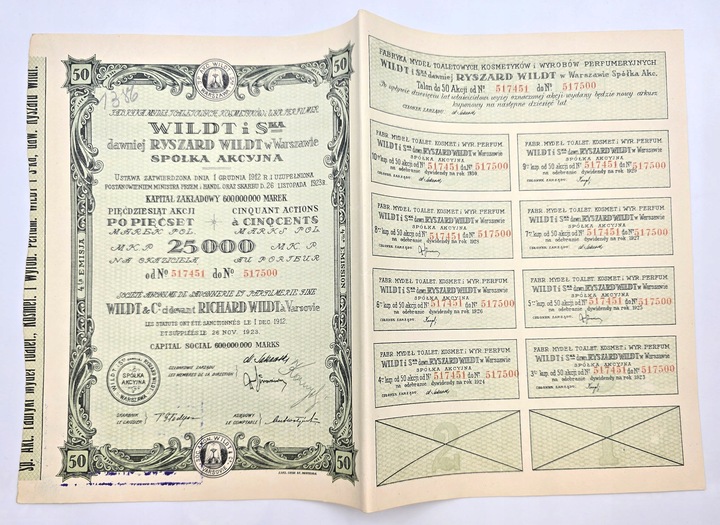 50
50
1346
FABRYKA MYDEŁ TOALETOWYCH, KOSMETYKÓW i WYROBÓW PERFUMERYJNYCH
WILDT i SKA
dawniej RYSZARD WILDT w Warszawie
SPÓŁKA AKCYJNA
USTAWA ZATWIERDZONA DNIA 1 GRUDNIA 1912 R. I UZUPEŁNIONA
POSTANOWIENIEM MINISTRA PRZEM. I HANDL. ORAZ SKARBU D. 26 LISTOPADA 1923 R.
KAPITAŁ ZAKŁADOWY 600.000.000 MAREK
PIĘĆDZIESIĄT AKCJI CINQUANT ACTIONS
PO PIĘĆSET à CINQCENTS
MAREK POL. MARKS POL.
MK.P 25000 MK.P
NA OKAZICIELA AU PORTEUR
od No 517451 do No 517500
4A EMISJA
4E EMISSION
SOCIÉTÉ ANONYME DE SAVONNERIE ET PARFUMERIE FINE
WILDT & Cie ci devant RICHARD WILDT à Varsovie
LES STATUTS ONT ÉTÉ SANCTIONNÉS LE 1 DÉC. 1912
ET SUPPLÉÉS LE 26 NOV. 1923.
CAPITAL SOCIAL 600.000.000 MARKS
SPÓŁKA
AKCYJNA
CZŁONKOWIE ZARZĄDU
LES MEMBRES DE LA DIRECTION
SKARBNIK
LE CAISSIER
KSIĘGOWY
LE COMPTABLE
50
50
FABRYKA MYDEŁ TOALETOWYCH, KOSMETYKÓW i WYROBÓW PERFUMERYJNYCH
WILDT i SKA dawniej RYSZARD WILDT w Warszawie Spółka Akc.
Talon do 50 Akcji od No 517451 do No 517500
Po upływie dziesięciu lat właścicielowi wyżej oznaczonej akcji wydany będzie nowy arkusz
kuponowy na następne dziesięć lat.
CZŁONEK ZARZĄDU:
FABR. MYDEŁ TOALET. KOSMET. i WYR. PERFUM
WILDT i SKA dawn. RYSZARD WILDT w Warszawie
SPÓŁKA AKCYJNA
10ty kup. od 50 akcji od No 517451 do No 517500
na odebranie dywidendy na rok 1930
CZŁONEK ZARZĄDU:
FABR. MYDEŁ TOALET. KOSMET. i WYR. PERFUM
WILDT i SKA dawn. RYSZARD WILDT w Warszawie
SPÓŁKA AKCYJNA
9ty kup. od 50 akcji od No 517451 do No 517500
na odebranie dywidendy na rok 1929
CZŁONEK ZARZĄDU:
FABR. MYDEŁ TOALET. KOSMET. i WYR. PERFUM
WILDT i SKA dawn. RYSZARD WILDT w Warszawie
SPÓŁKA AKCYJNA
8my kup. od 50 akcji od No 517451 do No 517500
na odebranie dywidendy na rok 1928
CZŁONEK ZARZĄDU:
FABR. MYDEŁ TOALET. KOSMET. i WYR. PERFUM
WILDT i SKA dawn. RYSZARD WILDT w Warszawie
SPÓŁKA AKCYJNA
7my kup. od 50 akcji od No 517451 do No 517500
na odebranie dywidendy na rok 1927
CZŁONEK ZARZĄDU:
FABR. MYDEŁ TOALET. KOSMET. i WYR. PERFUM
WILDT i SKA dawn. RYSZARD WILDT w Warszawie
SPÓŁKA AKCYJNA
6ty kup. od 50 akcji od No 517451 do No 517500
na odebranie dywidendy na rok 1926
CZŁONEK ZARZĄDU:
FABR. MYDEŁ TOALET. KOSMET. i WYR. PERFUM
WILDT i SKA dawn. RYSZARD WILDT w Warszawie
SPÓŁKA AKCYJNA
5ty kup. od 50 akcji od No 517451 do No 517500
na odebranie dywidendy na rok 1925
CZŁONEK ZARZĄDU:
FABR. MYDEŁ TOALET. KOSMET. i WYR. PERFUM
WILDT i SKA dawn. RYSZARD WILDT w Warszawie
SPÓŁKA AKCYJNA
4ty kup. od 50 akcji od No 517451 do No 517500
na odebranie dywidendy na rok 1924
CZŁONEK ZARZĄDU:
FABR. MYDEŁ TOALET. KOSMET. i WYR. PERFUM
WILDT i SKA dawn. RYSZARD WILDT w Warszawie
SPÓŁKA AKCYJNA
3ci kup. od 50 akcji od No 517451 do No 517500
na odebranie dywidendy na rok 1923
CZŁONEK ZARZĄDU:
2
1